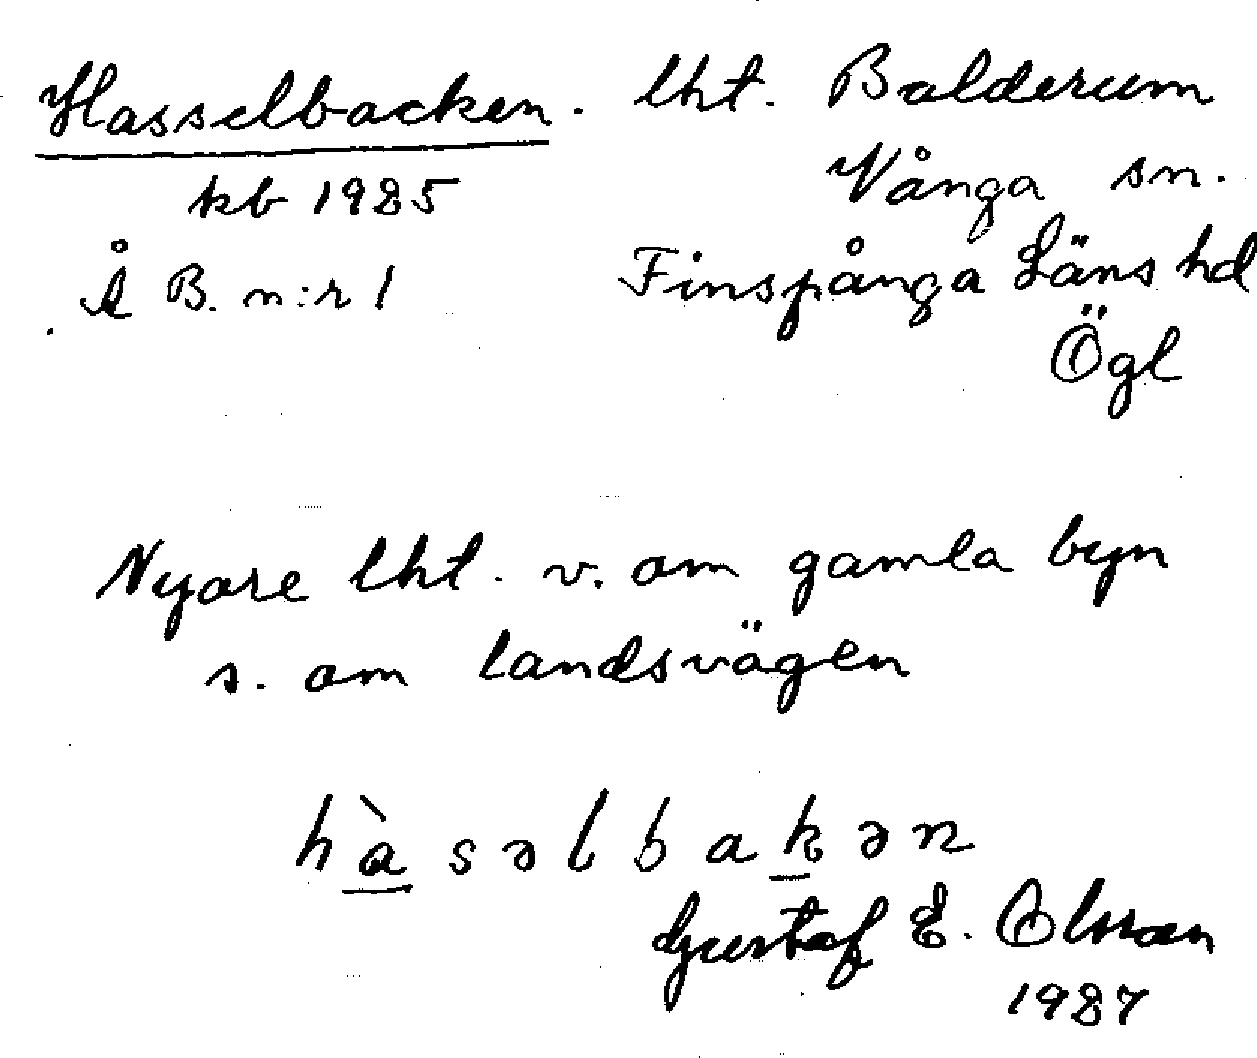 Hasselbacken. lht. Balderum
kb 1985 Vånga sn.
Å B. n:r 1 Finspånga Läns hd
Ögl
Nyare lht. v. om gamla byn
s. om landsvägen
hàsəlbakən
Gustaf E. Olsson
1987